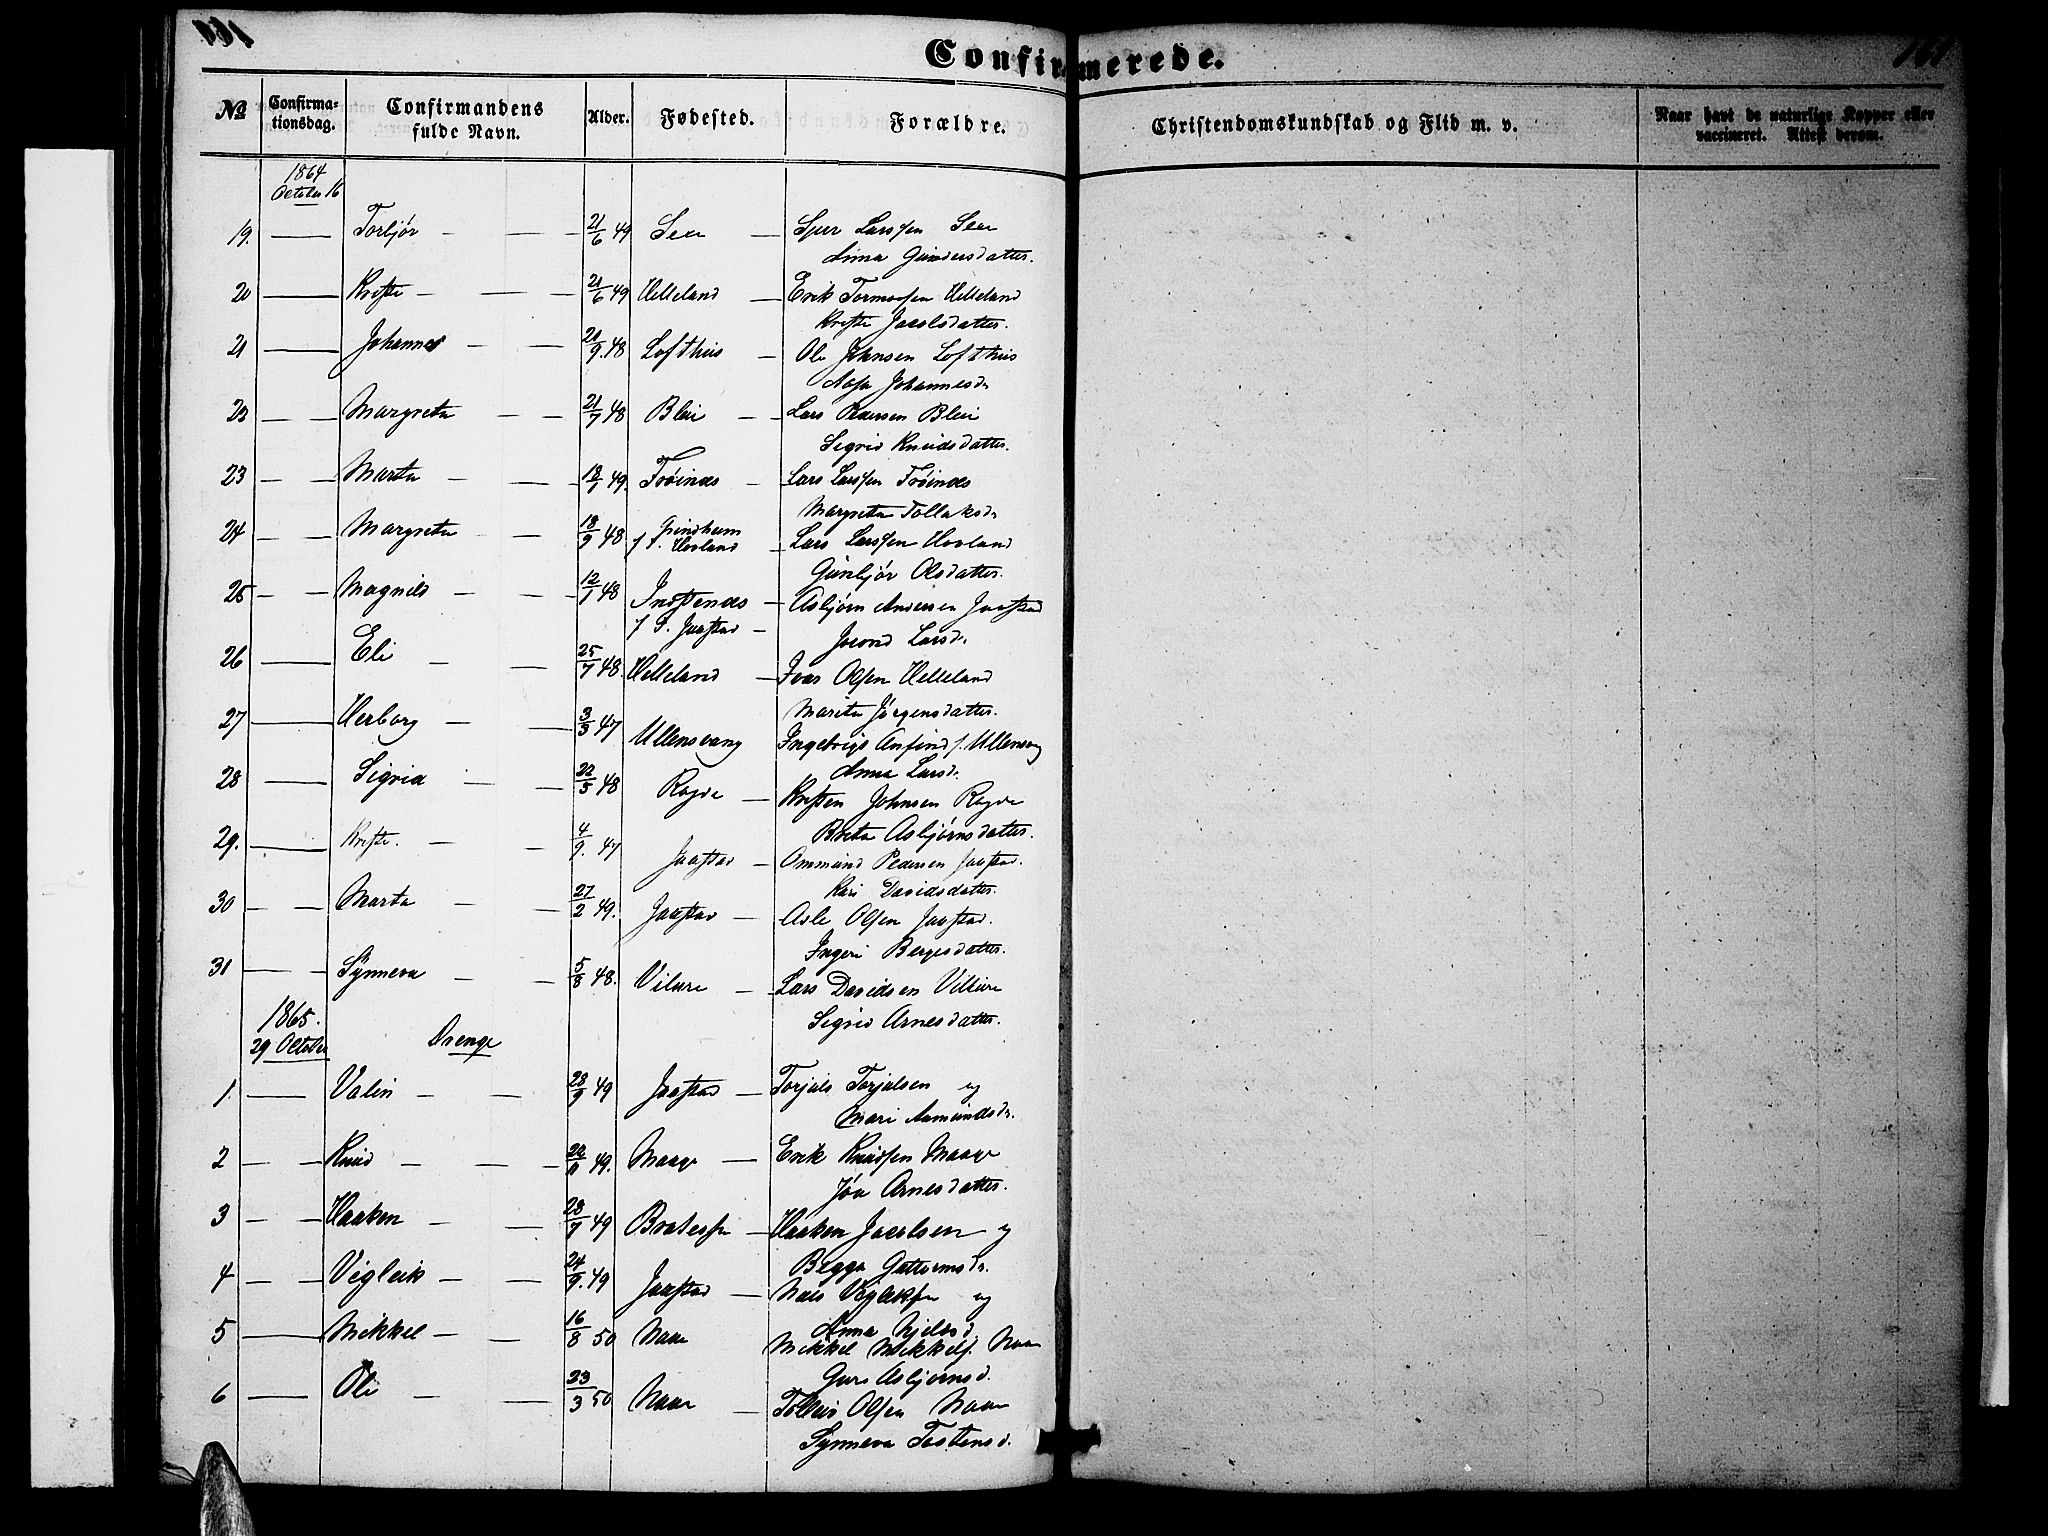 161
161
Confirmerede.
No Confirmationsdag. Confirmandens fulde Navn. Alder. Fødested. Forældre. Christendomskundskab og Flid m. v. Naar havt de naturlige Kopper eller vaccineret. Attest derom.
1864
October 16
19. Torbjør 21/6 49 Sexe Sjur Larssen Sexe
Anna Gundersdatter.
20 Kriste 21/6 49 Helleland Erik Tormodsen Helleland
Kriste Jacobsdatter.
21 Johanne 9. 48 Lofthus Ole Johnsen Lofthus
Aasa Johannesdr
22 Margreta 21/7 48 Bleie Lars Pedersen Bleie
Sigrid Knudsdatter.
23 Marta 49. Frøines Lars Larssen Frøines
Margreta Tollaksdr
24 Margreta 18/9 48 Grindheim
f. S. Hovland Lars Larssen Hovland
Gunbjør Olsdatter.
25 Magnild 12/1 48 Indstenæs Asbjørn Andersen Jaastad
f S. Jaastad Jorond Larsdr
26 Eli 25/7 48. Helleland Ivar Olsen Helleland
Marita Jørgensdatter.
27 Herborg 3/3 47 Ullensvang Ingebrigt Anfinds. Ullensvang
Anna Larsdr
28 Sigrid 22/5 48 Ragde Kristen Johnsen Ragde
Brita Asbjørnsdatter.
29. Kriste. 4/9. 47 Jaastad Ommund Pedersen Jaastad.
Kari Davidsdatter.
30 Marta 27/2 49. Jaastad Asle Olsen Jaastad.
Ingeri Bergesdatter.
31 Synneva 5/8 48. Vilure Lars Davidsen Vilure
Sigrid Arnesdatter.
1865.
29 October Drenge
1. Valin 28/9 49 Jaastad Torjals Torjalsen og
Mari Aamundsdr.
2 Knud 49. Maage Erik Knudsen Maage
Jøa Arnesdatter.
3 Haaken 28/7 49 Bratespe Haaken Jacobsen og
Begga Guttormsdr.
4 Vigleik 24/9. 49 Jaastad Niels Vigleiksen og
Anna Njelsd.
5 Mikkel 16/8 50 Naae Mikkel Mikkels. Naae
Guro Asbjørnsd.
6 Ole 23/3 50 Naae Tolleiv Olsen Naae
Synneva Tostensd.